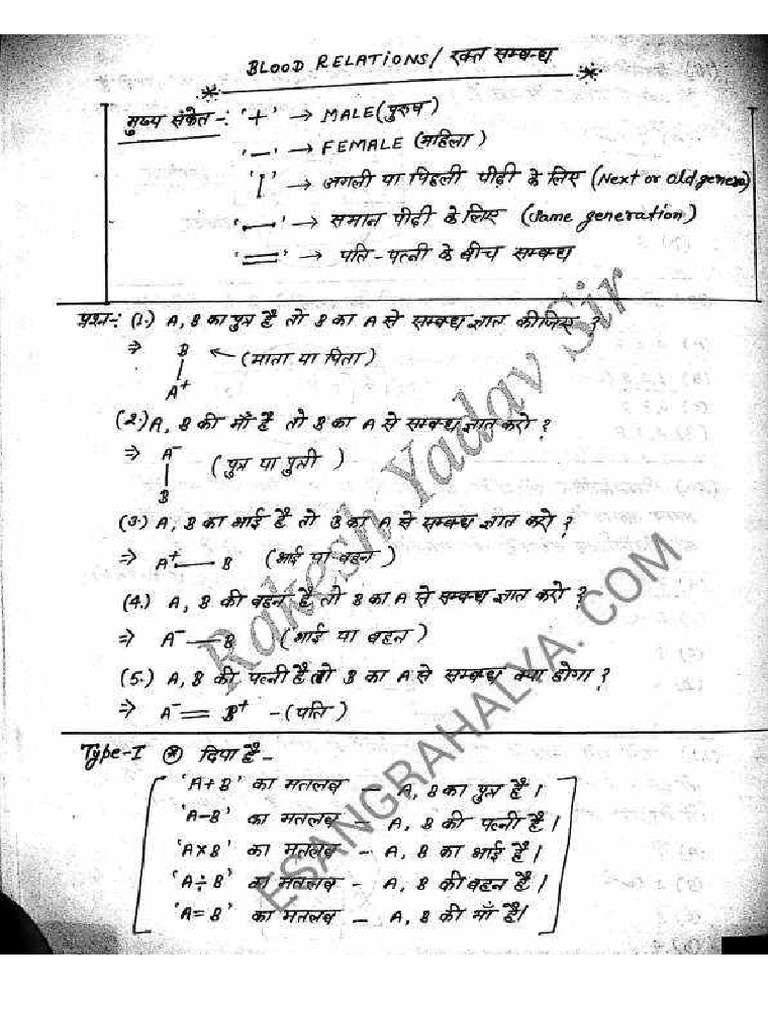 BLOOD RELATIONS / रक्त सम्बन्ध
मुख्य संकेत -: '+' → MALE (पुरुष)
'—' → FEMALE (महिला)
'|' → अगली या पिछली पीढ़ी के लिए (Next or old genera)
'—' → समान पीढ़ी के लिए (Same generation)
'=' → पति - पत्नी के बीच सम्बन्ध
प्रश्न -: (1.) A, B का पुत्र है तो B का A से सम्बन्ध ज्ञात कीजिए ?
⇒ B ← (माता या पिता)
|
A⁺
(2.) A, B की माँ है तो B का A से सम्बन्ध ज्ञात करो ?
⇒ A⁻ (पुत्र या पुत्री)
|
B
(3.) A, B का भाई है तो B का A से सम्बन्ध ज्ञात करो ?
⇒ A⁺ — B (भाई या बहन)
(4.) A, B की बहन है तो B का A से सम्बन्ध ज्ञात करो ?
⇒ A⁻ — B (भाई या बहन)
(5.) A, B की पत्नी है तो B का A से सम्बन्ध क्या होगा ?
⇒ A⁻ = B⁺ - (पति)
Type-I ⊛ दिया है -
'A+B' का मतलब — A, B का पुत्र है।
'A-B' का मतलब — A, B की पत्नी है।
'A×B' का मतलब - A, B का भाई है।
'A÷B' का मतलब - A, B की बहन है।
'A=B' का मतलब — A, B की माँ है।
Rakesh Yadav Sir
ESANGRAHALYA.COM